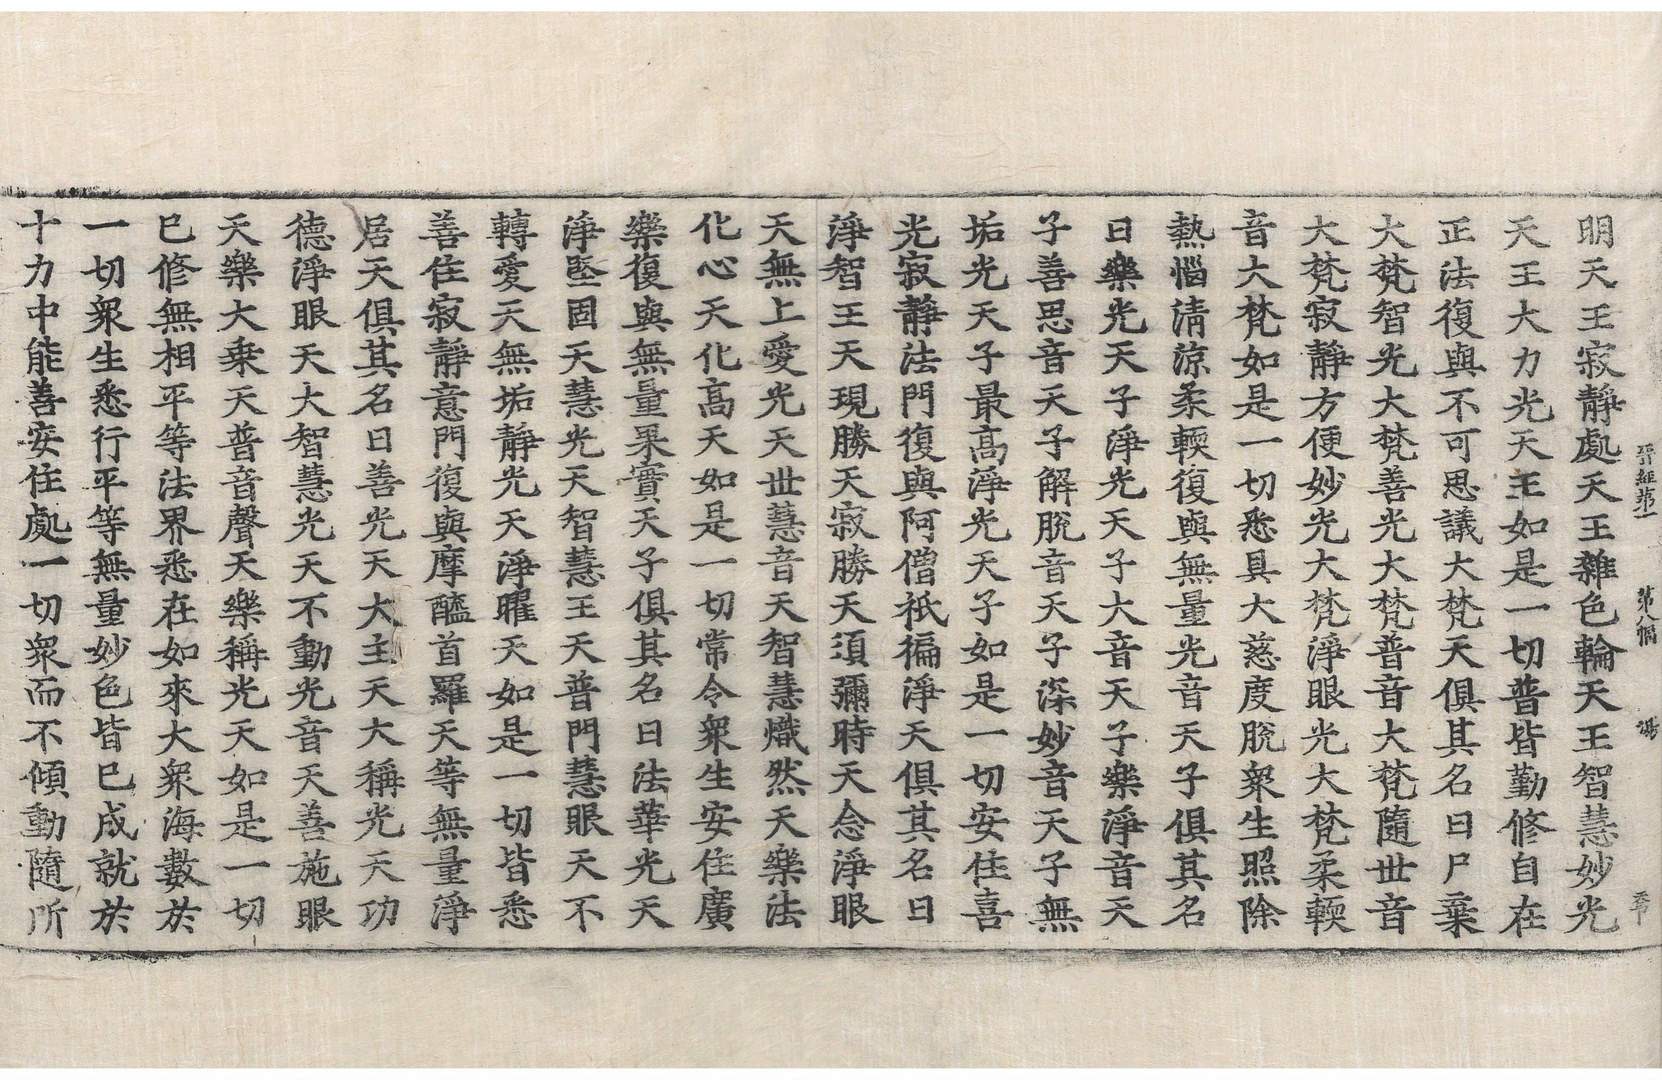 晉經第一 第八幅 湯
明天王寂靜處天王雜色輪天王智慧妙光
天王大力光天王如是一切普皆勤修自在
正法復與不可思議大梵天俱其名曰尸棄
大梵智光大梵善光大梵普音大梵隨世音
大梵寂靜方便妙光大梵淨眼光大梵柔輭
音大梵如是一切悉具大慈度脫衆生照除
熱惱清涼柔輭復與無量光音天子俱其名
曰樂光天子淨光天子大音天子樂淨音天
子善思音天子解脫音天子深妙音天子無
垢光天子最高淨光天子如是一切安住喜
光寂靜法門復與阿僧祇徧淨天俱其名曰
淨智王天現勝天寂勝天須彌時天念淨眼
天無上愛光天世慧音天智慧熾然天樂法
化心天化高天如是一切常令衆生安住廣
樂復與無量果實天子俱其名曰法華光天
淨堅固天慧光天智慧王天普門慧眼天不
轉愛天無垢靜光天淨曜天如是一切皆悉
善住寂靜意門復與摩醯首羅天等無量淨
居天俱其名曰善光天大主天大稱光天功
德淨眼天大智慧光天不動光音天善施眼
天樂大乘天普音聲天樂稱光天如是一切
已修無相平等法界悉在如來大衆海數於
一切衆生悉行平等無量妙色皆已成就於
十力中能善安住處一切衆而不傾動隨所